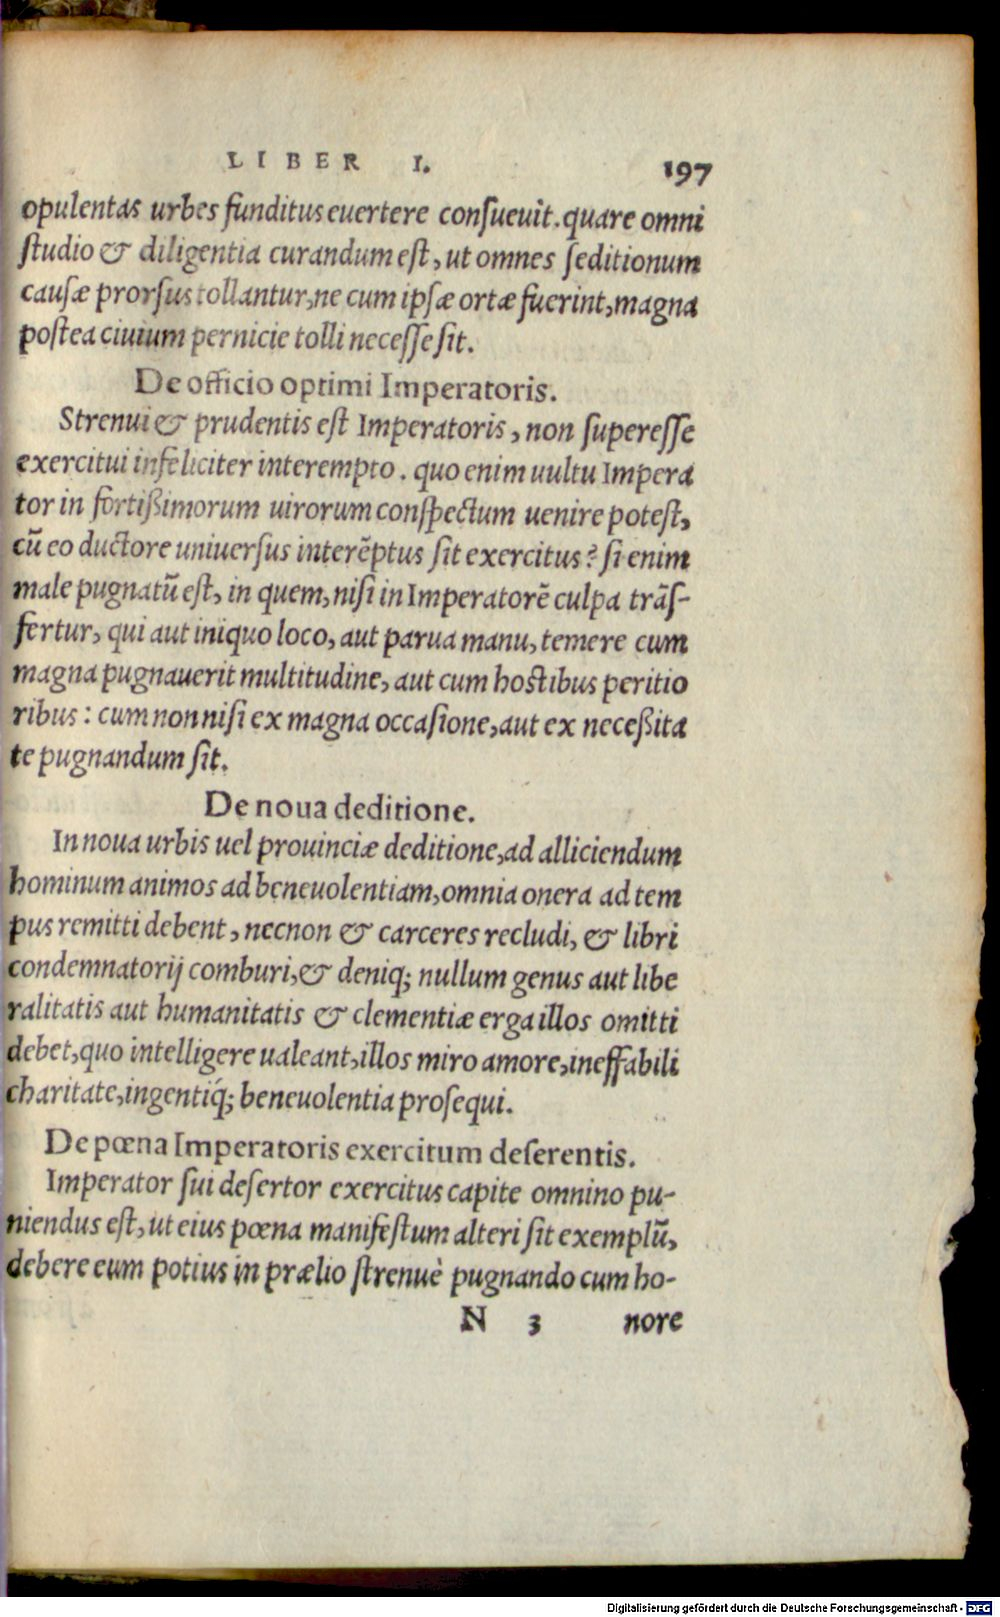 LIBER I. 197
opulentas urbes funditus euertere consueuit. quare omni
studio & diligentia curandum est, ut omnes seditionum
causæ prorsus tollantur, ne cum ipsæ ortæ fuerint, magna
postea ciuium pernicie tolli necesse sit.
De officio optimi Imperatoris.
Strenui & prudentis est Imperatoris, non superesse
exercitui infeliciter interempto. quo enim uultu Impera
tor in fortißimorum uirorum conspectum uenire potest,
cũ eo ductore uniuersus interẽptus sit exercitus? si enim
male pugnatũ est, in quem, nisi in Imperatorẽ culpa trãs-
fertur, qui aut iniquo loco, aut parua manu, temere cum
magna pugnauerit multitudine, aut cum hostibus peritio
ribus: cum non nisi ex magna occasione, aut ex neceßita
te pugnandum sit.
De noua deditione.
In noua urbis uel prouinciæ deditione, ad alliciendum
hominum animos ad beneuolentiam, omnia onera ad tem
pus remitti debent, necnon & carceres recludi, & libri
condemnatorij comburi, & deniq; nullum genus aut libe
ralitatis aut humanitatis & clementiæ erga illos omitti
debet, quo intelligere ualeant, illos miro amore, ineffabili
charitate, ingentiq́; beneuolentia prosequi.
De pœna Imperatoris exercitum deserentis.
Imperator sui desertor exercitus capite omnino pu-
niendus est, ut eius pœna manifestum alteri sit exemplũ,
debere eum potius in prælio strenuè pugnando cum ho-
N 3 nore
Digitalisierung gefördert durch die Deutsche Forschungsgemeinschaft - DFG